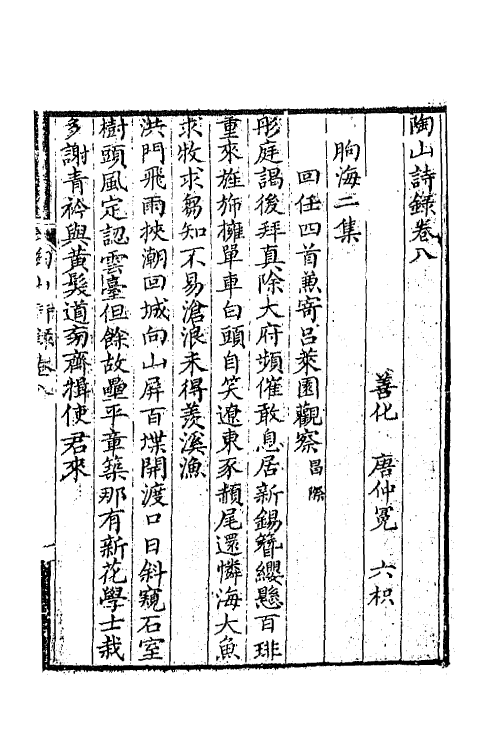 陶山詩錄卷八
善化　唐仲冕　六枳
朐海二集
回任四首兼寄呂萊園觀察昌際
彤庭謁後拜真除大府頻催敢息居新錫簪纓懸百琲
重來旌旆擁單車白頭自笑遼東豕赬尾還憐海大魚
求牧求芻知不易滄浪未得羨溪漁
洪門飛雨挾潮回城向山屏百堞開渡口日斜窺石室
樹頭風定認雲臺但餘故壘平章築那有新花學士栽
多謝青衿與黃髮道旁齊揖使君來